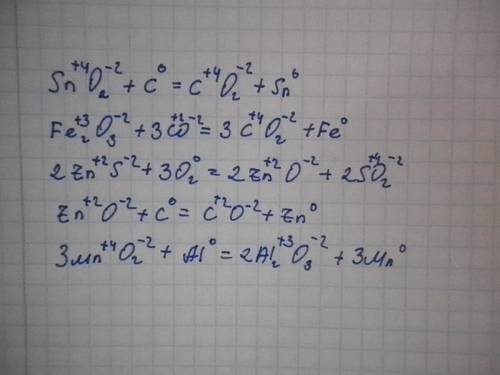 Sn⁺⁴O₂⁻² + C⁰ = C⁺⁴O₂⁻² + Sn⁰
Fe₂⁺³O₃⁻² + 3C⁺²O⁻² = 3C⁺⁴O₂⁻² + Fe⁰
2Zn⁺²S⁻² + 3O₂⁰ = 2Zn⁺²O⁻² + 2S⁺⁴O₂⁻²
Zn⁺²O⁻² + C⁰ = C⁺²O⁻² + Zn⁰
3Mn⁺⁴O₂⁻² + Al⁰ = 2Al₂⁺³O₃⁻² + 3Mn⁰